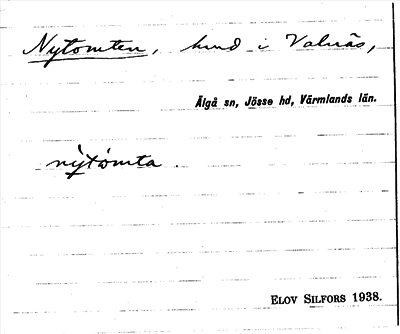 Nytomten, hmd i Valnäs,
Älgå sn, Jösse hd, Värmlands län.
nỳtómta.
ELOV SILFORS 1938.